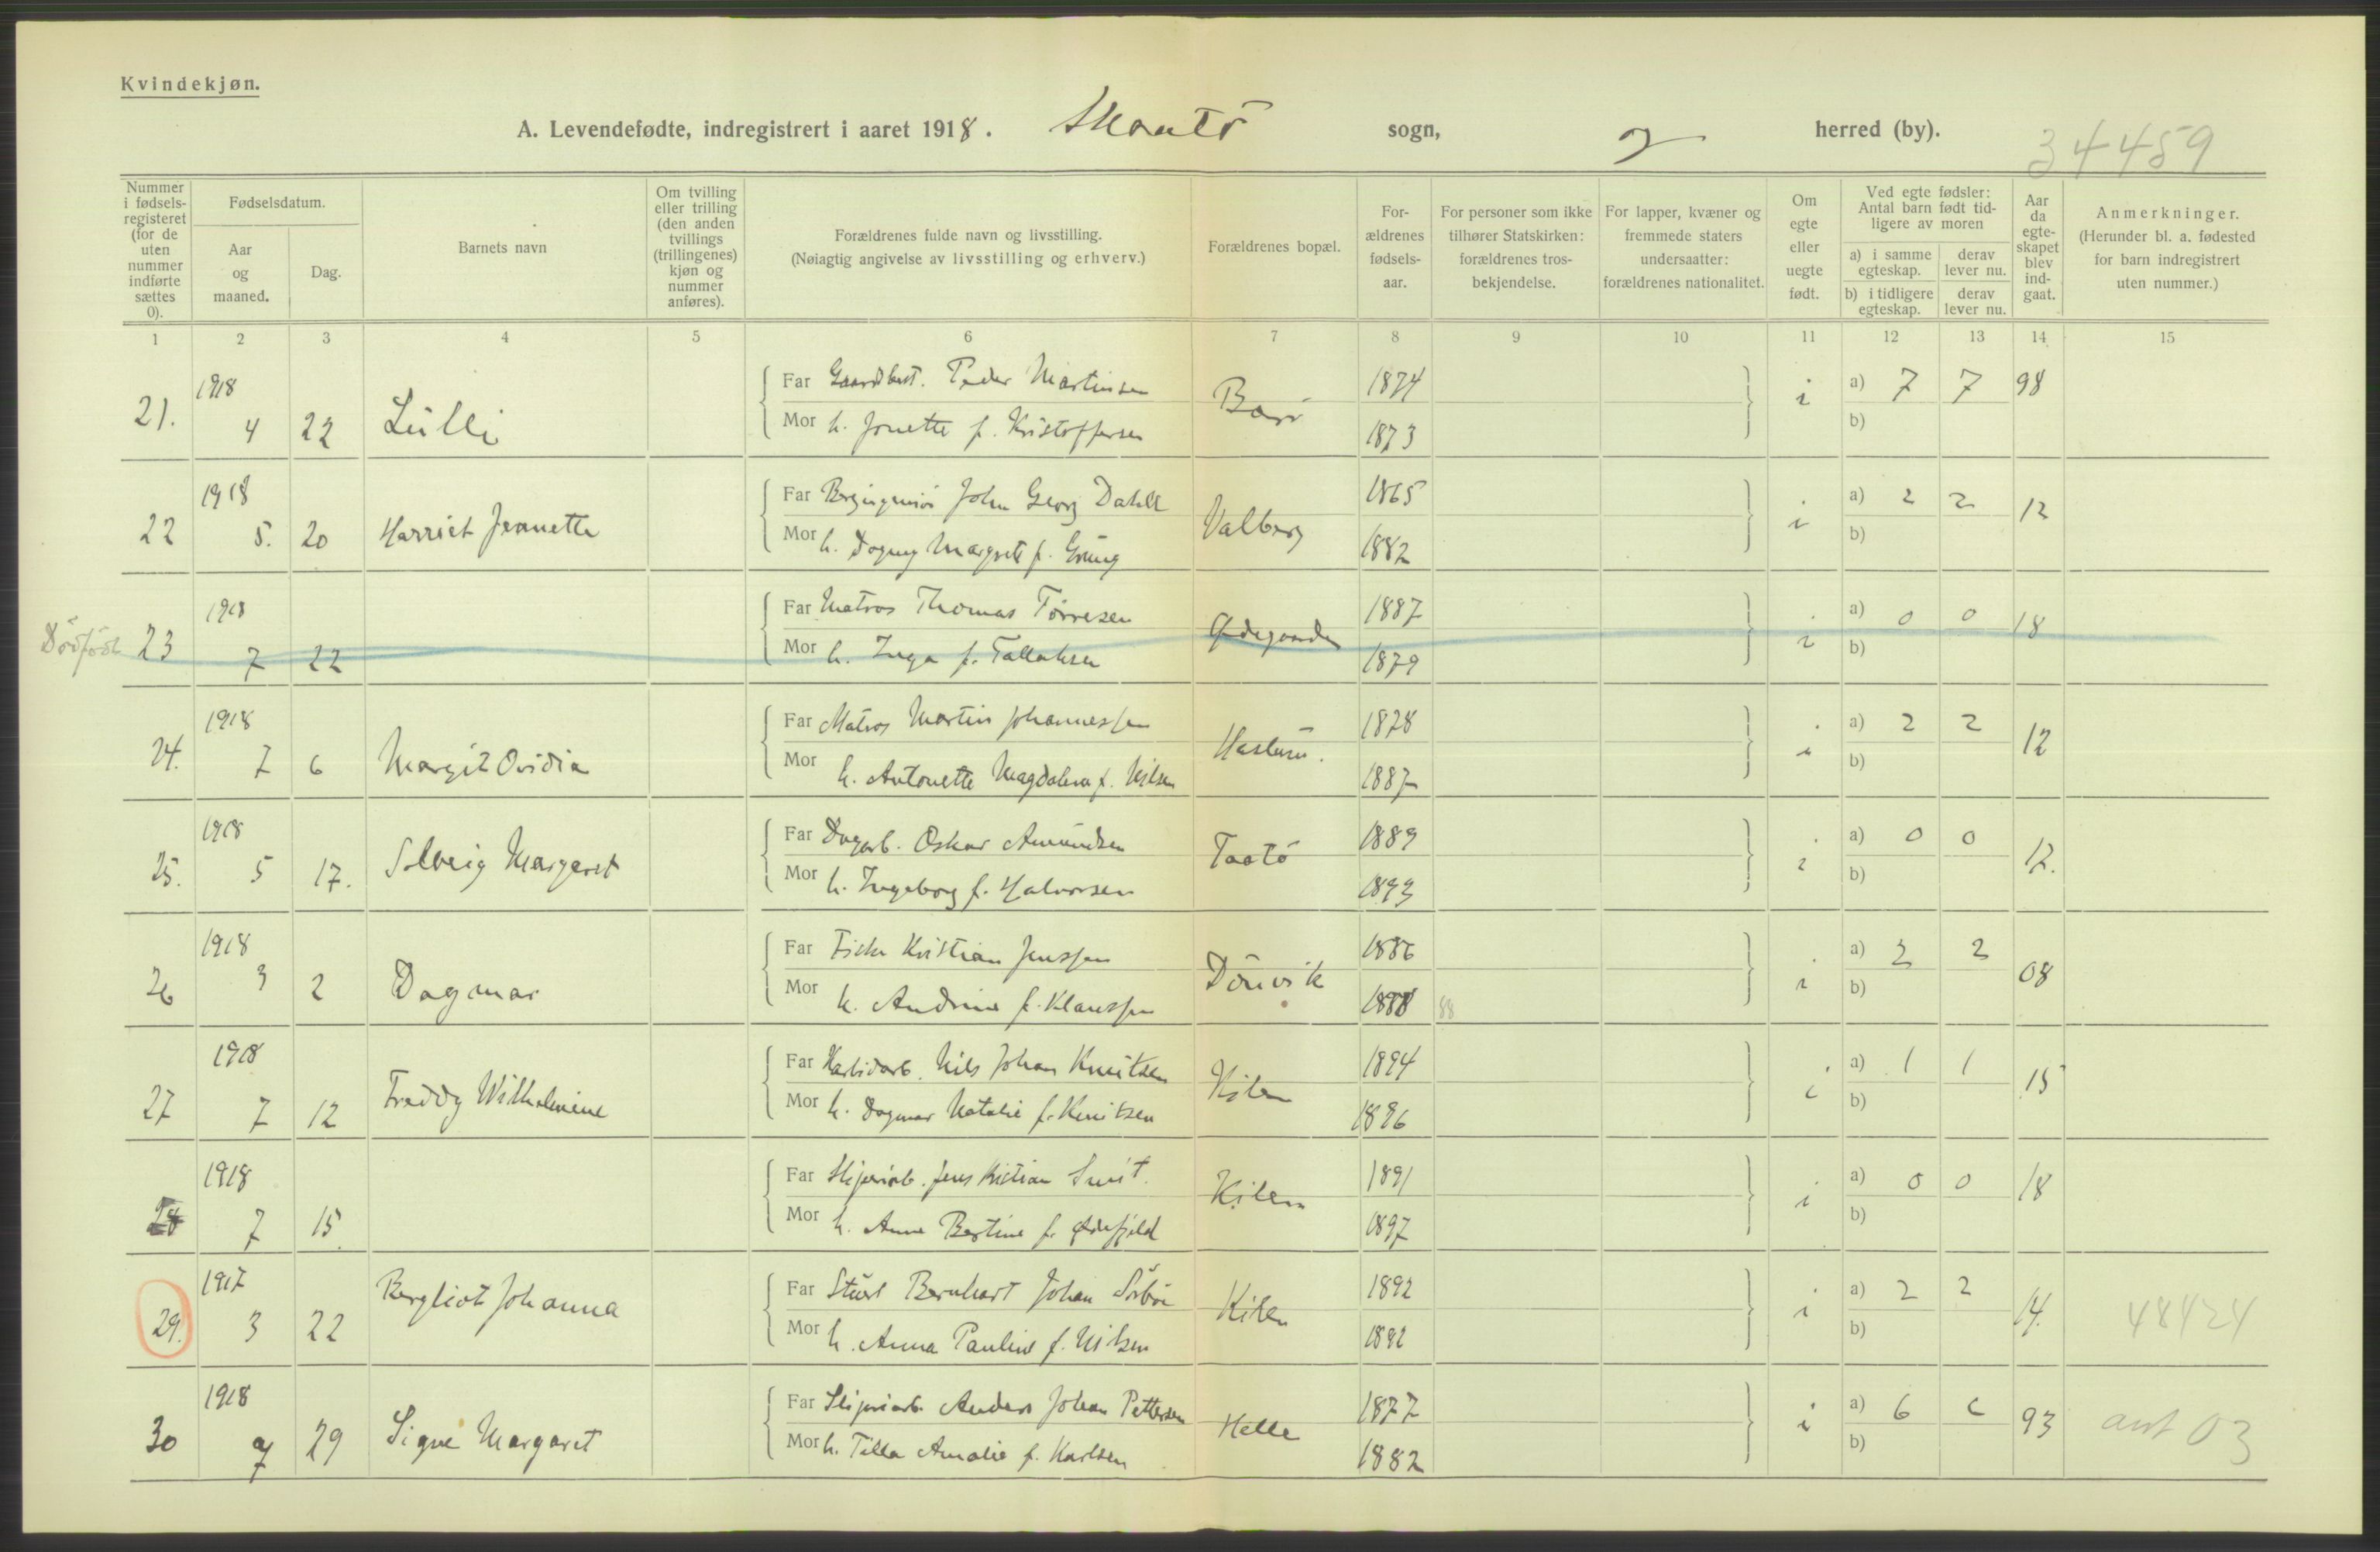 Kvindekjøn.
A. Levendefødte, indregistrert i aaret 1918. Skaatö sogn, herred (by).
34459
Nummer i fødsels-registeret (for de uten nummer indførte sættes 0).
Fødselsdatum.
Aar og maaned.
Dag.
Barnets navn
Om tvilling eller trilling (den anden tvillings (trillingenes) kjøn og nummer anføres).
Forældrenes fulde navn og livsstilling.
(Nøiagtig angivelse av livsstilling og erhverv.)
Forældrenes bopæl.
For-ældrenes fødsels-aar.
For personer som ikke tilhører Statskirken: forældrenes tros-bekjendelse.
For lapper, kvæner og fremmede staters undersaatter: forældrenes nationalitet.
Om egte eller uegte født.
Ved egte fødsler: Antal barn født tid-ligere av moren
a) i samme egteskap.
derav lever nu.
b) i tidligere egteskap.
derav lever nu.
Aar da egte-skapet blev ind-gaat.
Anmerkninger.
(Herunder bl. a. fødested for barn indregistrert uten nummer.)
1 2 3 4 5 6 7 8 9 10 11 12 13 14 15
1918
21. 4 22 Lulli
Far Gaardbest. Peder Martinsen 1874 i a) 7 7 98
Mor h. Jonette f. Kristoffersen 1873 b)
1918
22 5. 20 Harriet Jeanette
Far Bergingeniör John Georg Dahll Valberg 1865 i a) 2 2 12
Mor h. Dagny Margrete f. Grung 1882 b)
1918
Dödfödt 23 7 22
Far Matros Thomas Törresen Ødegaarden 1887 i a) 0 0 18
Mor h. Inga f. Tallaksen 1879 b)
1918
24. 7 6 Margit Ovidia
Far Matros Martin Johannessen 1878 i a) 2 2 12
Mor h. Antonette Magdalena f. Nilsen 1887 b)
1918
25. 5 17. Solveig Margaret
Far Dagarb. Oskar Amundsen Taatö 1889 i a) 0 0 12.
Mor h. Ingeborg f. Halvorsen 1893 b)
1918
26 3 2 Dagmar
Far Fisker Kristian Jenssen Dönvik 1886 i a) 3 2 08
Mor h. Andrine f. Klaussen 1888 88 b)
1918
27 7 12 Freddy Wilhelmine
Far Karbidarb. Nils Johan Knutsen Kilen 1894 i a) 1 1 15
Mor h. Dagmar Natalie f. Knutsen 1896 b)
1918
28 7 15.
Far Sliperiarb. Jens Kristian Smit. Kilen 1891 i a) 0 0 18
Mor h. Anne Bertine f. Ødefjeld 1897 b)
1917
29. 3 22 Bergliot Johanna
Far Stuert Bernhart Johan Sörbö Kilen 1892 i a) 2 2 14. 48424
Mor h. Anna Pauline f. Nilsen 1892 b)
1918
30 7 29 Signe Margaret
Far Sliperiarb. Anders Johan Pettersen Helle 1877 i a) 6 6 93 ant 03
Mor h. Tilla Amalie f. Karlsen 1882 b)